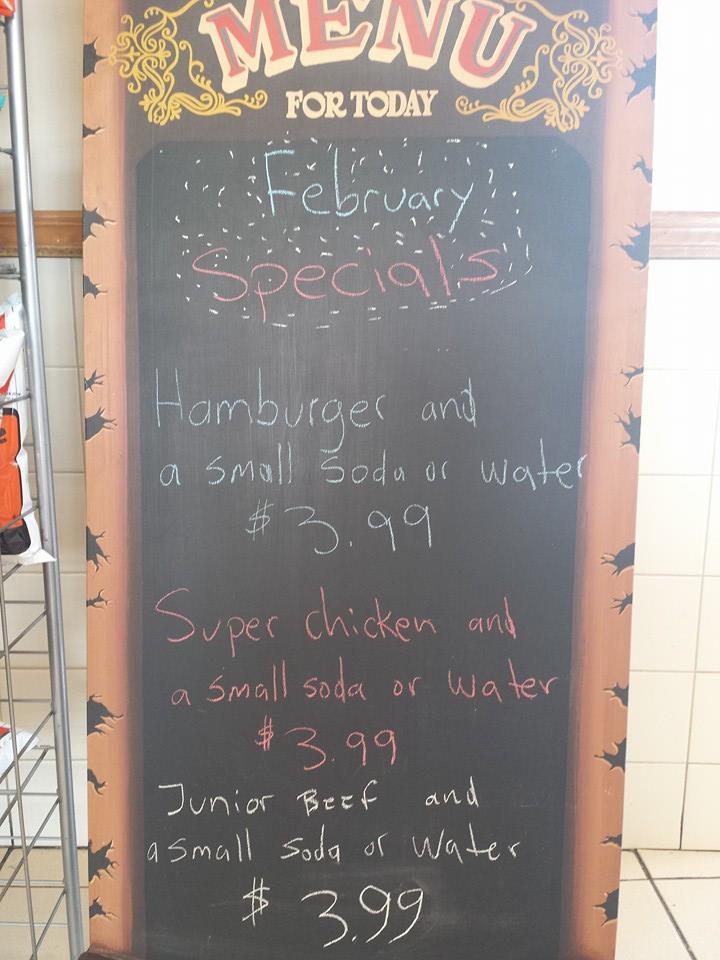 MENU
FOR TODAY
February
Specials
Hamburger and
a small soda or water
$3.99
Super chicken and
a small soda or water
$3.99
Junior Beef and
a small soda or water
$3.99